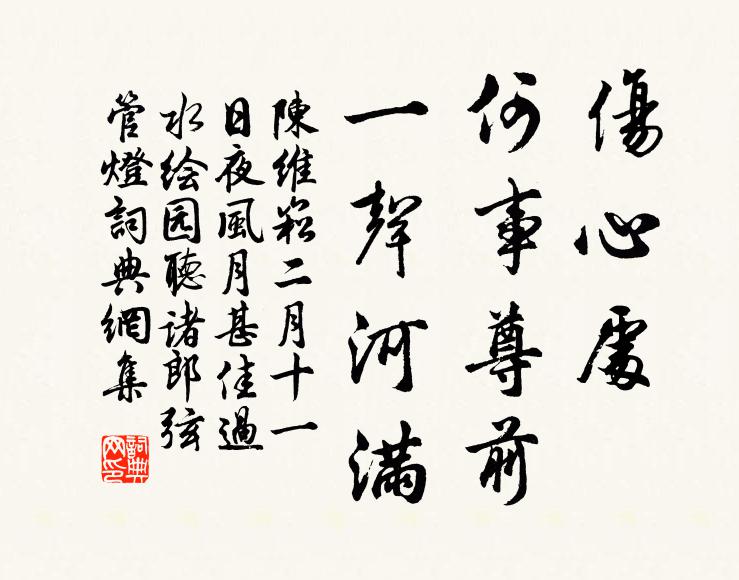 傷心處
何事尊前
一聲河滿
陳維崧二月十一
日夜風月甚佳過
水绘园聽诸郎弦
管燈詞典網集
詞典网印